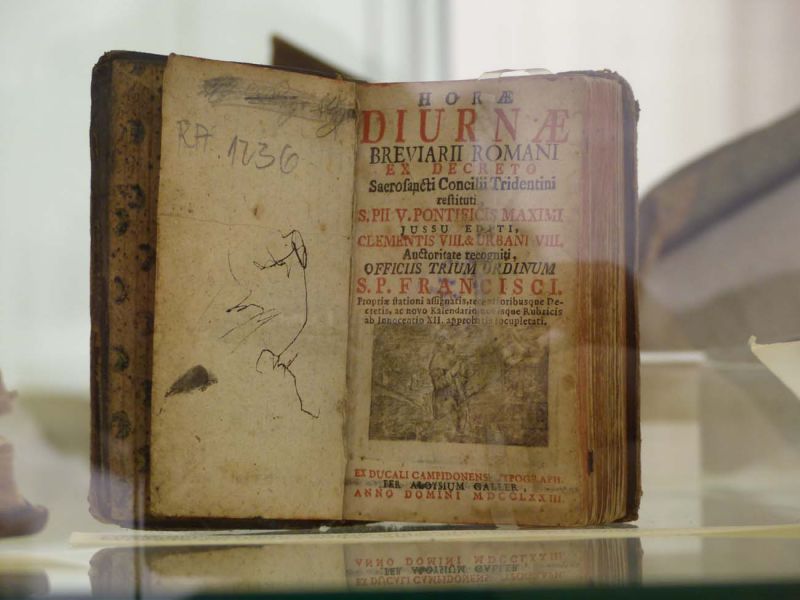 RA. 1236
HORÆ
DIURNÆ
BREVIARII ROMANI
EX DECRETO
Sacrosancti Concilii Tridentini
restituti,
S. PII V. PONTIFICIS MAXIMI
JUSSU EDITI,
CLEMENTIS VIII. & URBANI VIII.
Auctoritate recogniti,
OFFICIIS TRIUM ORDINUM
S. P. FRANCISCI.
Propriæ stationi assignatis, recentioribusque De-
cretis, ac novo Kalendario, novisque Rubricis
ab Innocentio XII. approbatis locupletati.
EX DUCALI CAMPIDONENSI TYPOGRAPH.
PER ALOYSIUM GALLER,
ANNO DOMINI MDCCLXXIII.